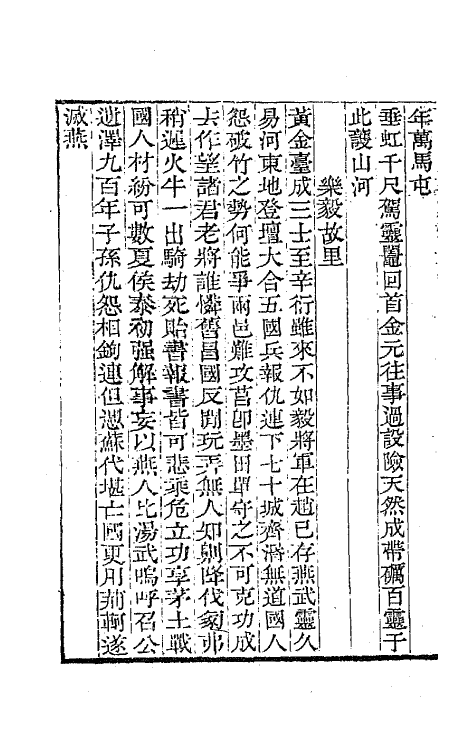 年萬馬屯
垂虹千尺駕靈鼉回首金元往事過設險天然成帶礪百靈于
此護山河
樂毅故里
黃金臺成三士至辛衍雖來不如毅將軍在趙已存燕武靈久
易河東地登壇大合五國兵報仇連下七十城齊湣無道國人
怨破竹之勢何能爭兩邑難攻莒卽墨田單守之不可克功成
去作望諸君老將誰憐舊昌國反間玩弄無人知劇降伐毅弗
稍遲火牛一出騎劫死貽書報書皆可悲乘危立功享茅土戰
國人材紛可數夏侯泰初强解事妄以燕人比湯武嗚呼召公
遺澤九百年子孫仇怨相鉤連但憑蘇代堪亡國更用荊軻遂
滅燕